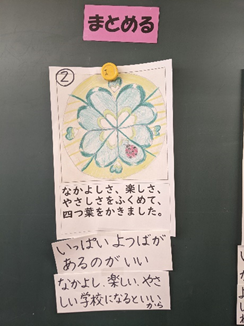 まとめる
②
なかよしさ、楽しさ、
やさしさをふくめて、
四つ葉をかきました。
いっぱい よつばが
あるのが いい
なかよし、楽しい、やさ
しい学校になるといい
から